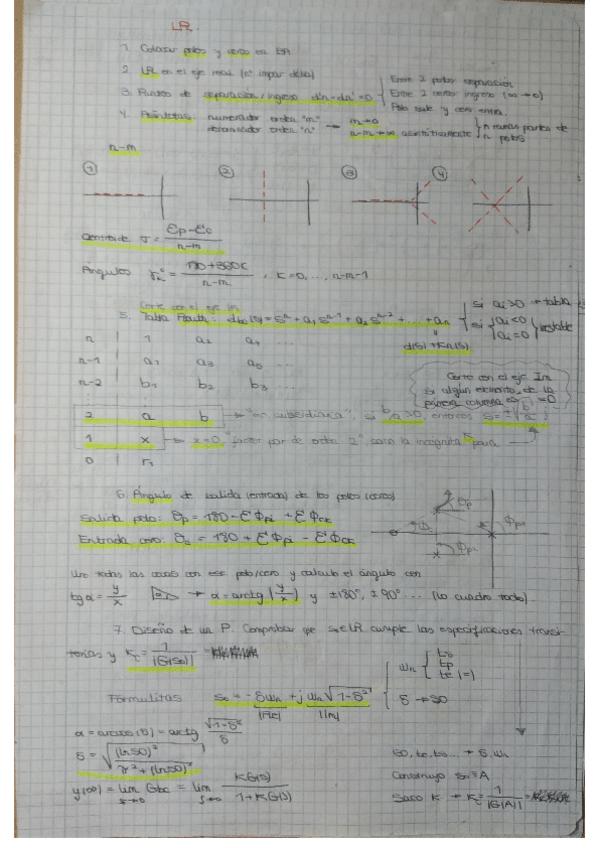 LR.
1. Colocar polos y ceros en BA.
2. LR en el eje real (nº impar dcha)
3. Puntos de separación/ingreso d'n-dn'=0 { Entre 2 polos separación
Entre 2 ceros ingreso (∞→0)
Polo sale y cero entra.
4. Asíntotas: numerador orden "m" → m→0
denominador orden "n" n-m→∞ asintóticamente } n ramas parten de n polos
n-m
① ② ③ ④
Centroide σ = Ep-Ec / n-m
Ángulos γk° = 180+360K / n-m , K=0, ..., n-m-1
Corte con el eje Im
5. Tabla Routh: dbc(s) = s^n + a₁ s^n-1 + a₂ s^n-2 + ... + an { si ai>0 → tabla
si { ai<0
ai=0 } inestable
d(s)+Kn(s)
n | 1 a₂ a₄ ...
n-1 | a₁ a₃ a₅ ...
n-2 | b₁ b₂ b₃ ...
Corte con el eje Im
si algún elemento de la
primera columna es =0
2 a b → "ec subsidiaria", si b/a >0 entonces
1 x → x=0 "factor par de orden 2", saco la incógnita K para
0 | r₁
6. Ángulo de salida (entrada) de los polos (ceros)
Salida polo: θp = 180 - Σ'Φpi + Σ'Φck
Entrada cero: θc = 180 + Σ'Φpi - Σ'Φck
θp
Uno todas las cosas con ese polo/cero y calculo el ángulo con
tgα = y/x → α = arctg(y/x) y ±180°, ±90°... (lo cuadro todo).
7. Diseño de un P. Comprobar que s₀∈LR cumple las especificaciones transi-
torias y Kc = 1/|G(s₀)|
Formulitas s₀ = -δωn + jωn√1-δ²
|Re| |Im|
ωn { to
tp
ts
δ → SO
α = arccos(δ) = arctg √1-δ² / δ
δ = √ (lnSO)² / π² + (lnSO)²
y(∞) = lim Gbc = lim KG(s) / 1+KG(s)
s→0 s→0
SO, ts, to... → δ, ωn
Construyo s₀ ≡ A
Saco K → Kc = 1/|G(A)|